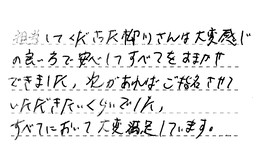 担当してくださった柳川さんは大変感じ
の良い方で安心してすべてをおまかせ
できました。次があればご指名させて
いただきたいくらいでした。
すべてにおいて大変満足しています。